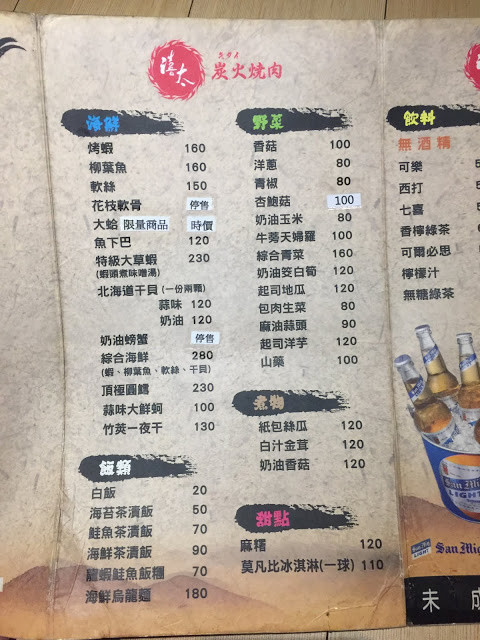 禧太
キタイ
炭火焼肉
海鮮
烤蝦 160
柳葉魚 160
軟絲 150
花枝軟骨 停售
大蛤 限量商品 時價
魚下巴 120
特級大草蝦 230
(蝦頭煮味噌湯)
北海道干貝(一份兩顆)
蒜味 120
奶油 120
奶油螃蟹 停售
綜合海鮮 280
(蝦、柳葉魚、軟絲、干貝)
頂極圓鱈 230
蒜味大鮮蚵 100
竹莢一夜干 130
飯類
白飯 20
海苔茶漬飯 50
鮭魚茶漬飯 70
海鮮茶漬飯 90
龍蝦鮭魚飯糰 70
海鮮烏龍麵 180
野菜
香菇 100
洋蔥 80
青椒 80
杏鮑菇 100
奶油玉米 80
牛蒡天婦羅 100
綜合青菜 160
奶油筊白筍 120
起司地瓜 120
包肉生菜 80
麻油蒜頭 90
起司洋芋 120
山藥 100
煮物
紙包絲瓜 120
白汁金茸 120
奶油香菇 120
甜點
麻糬 120
莫凡比冰淇淋(一球) 110
禧
飲料
無酒精
可樂
西打
七喜
香檸綠茶
可爾必思
檸檬汁
無糖綠茶
San Mig
LIGHT
San Mig
未成